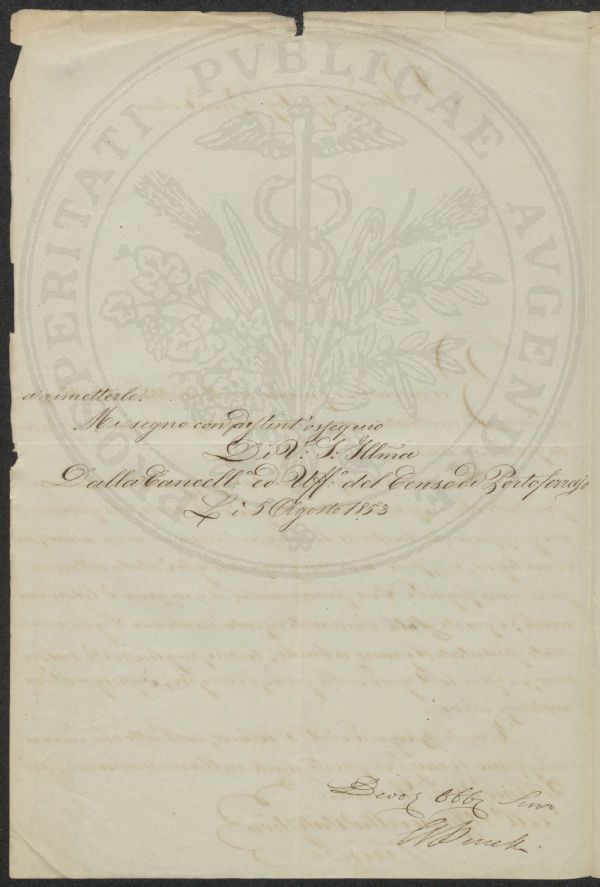 PROSPERITATI PVBLICAE AVGENDAE
a rimetterle.
Mi segno con distint' ossequio
Di V.ª S. Illma
Dalla Cancell.ª ed Uff.º del Censo di Portoferrajo
Li 5 Agosto 1853
Devoz Obbz Serv